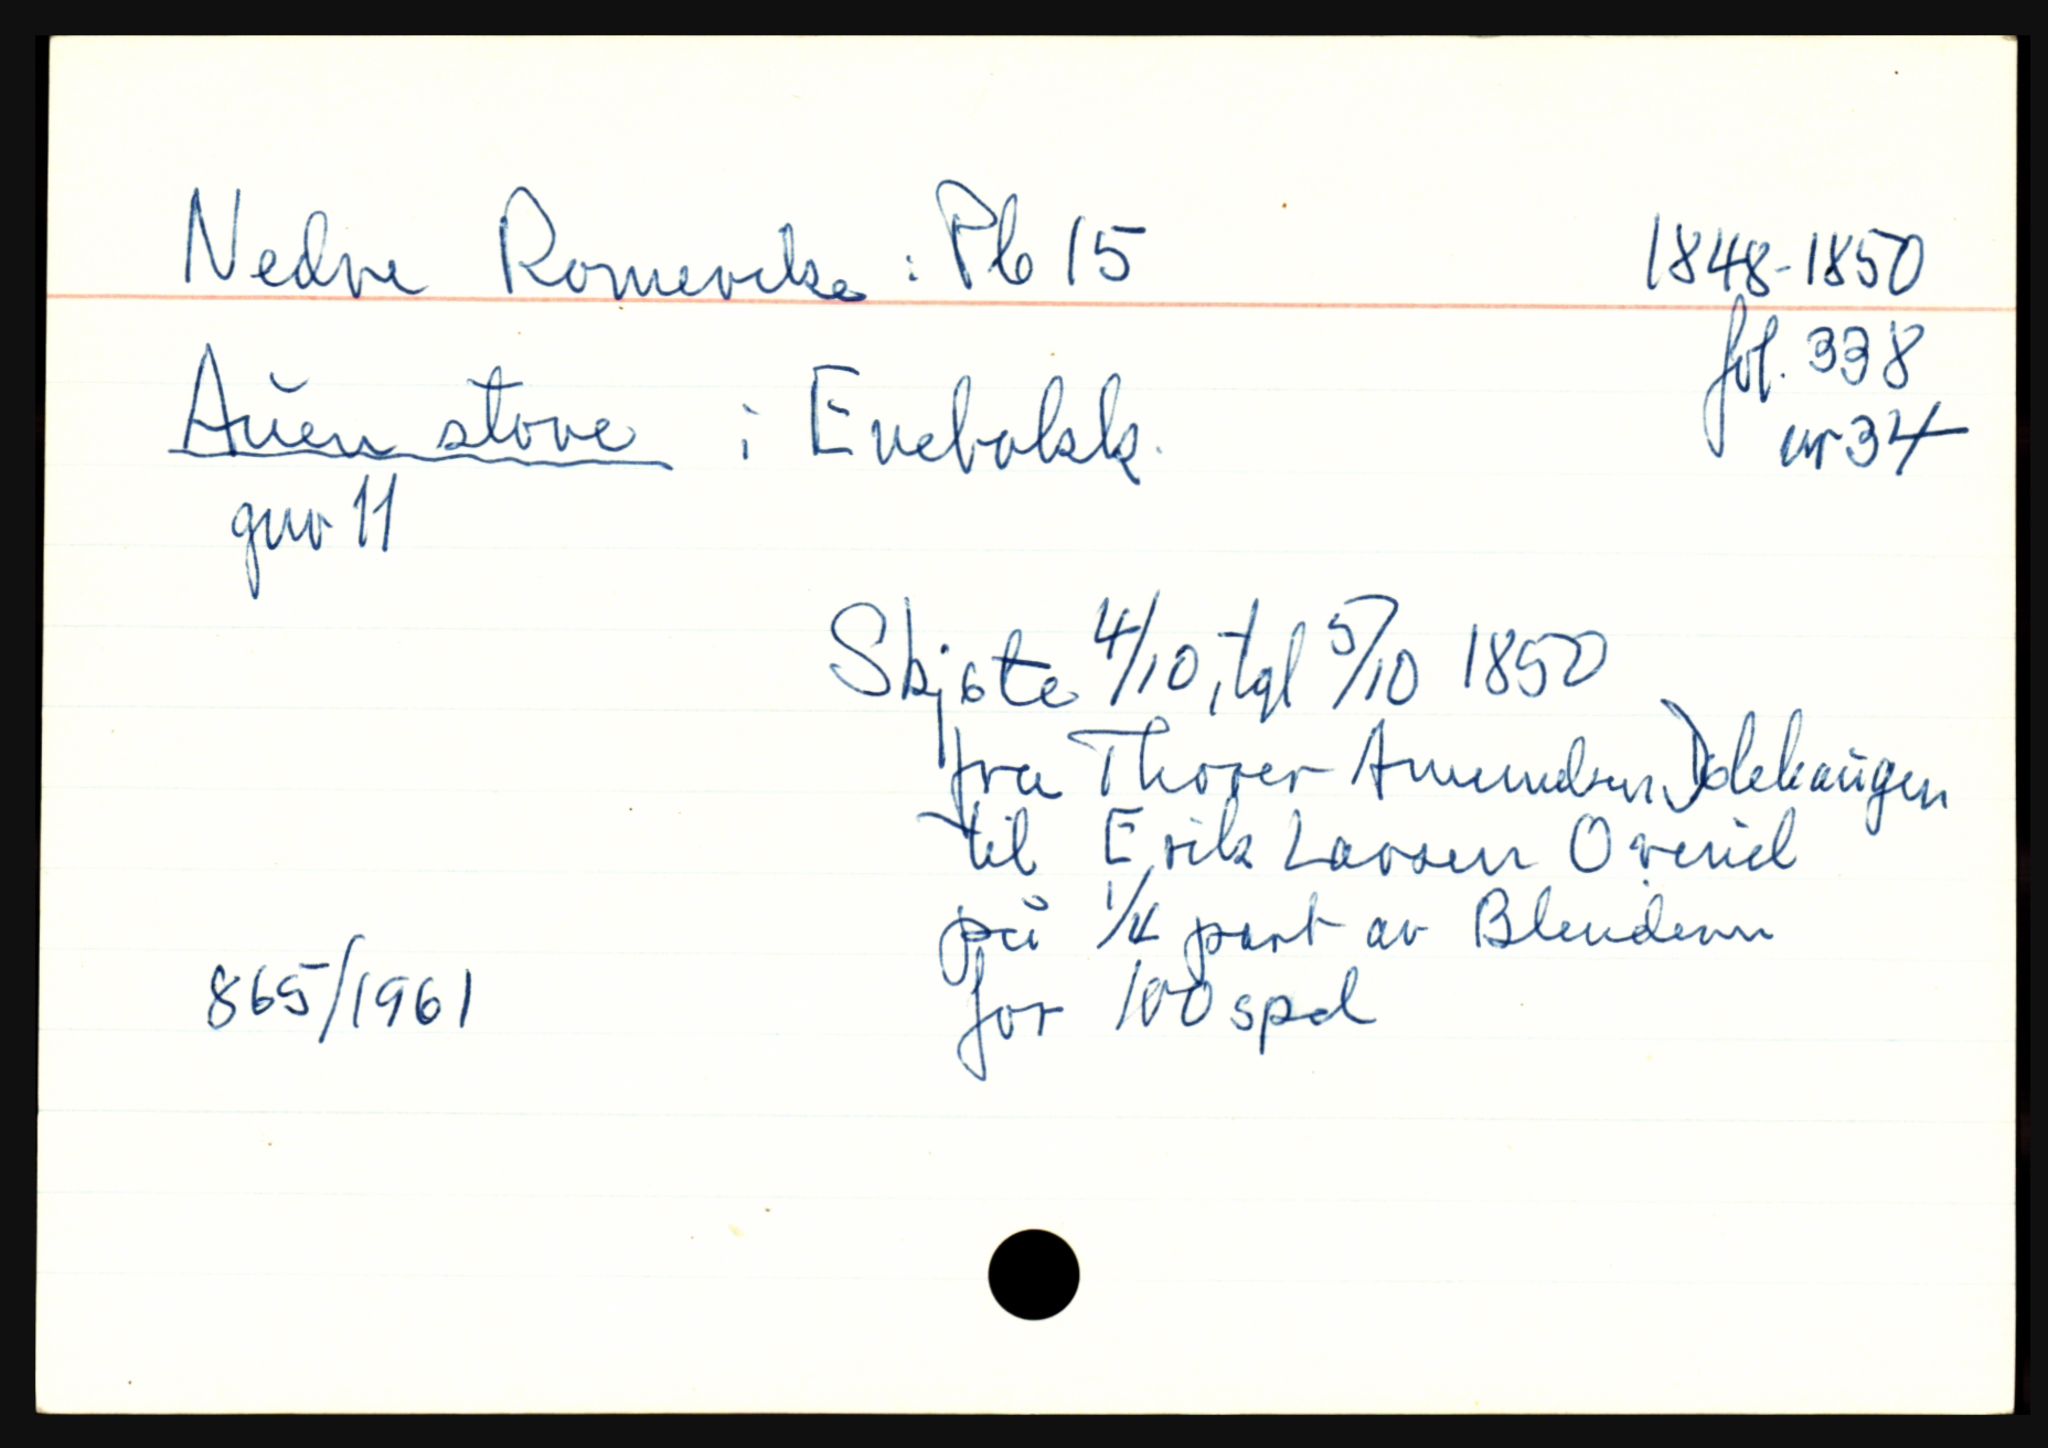 Nedre Romerike : Pb 15
1848-1850
fol. 338
nr 34
Auen store i Enebakk.
gnr 11
Skjøte 4/10, tgl 5/10 1850
fra Thorer Amundsen
til Erik Larsen
på 1/4 part av
for 100 spd
865/1961